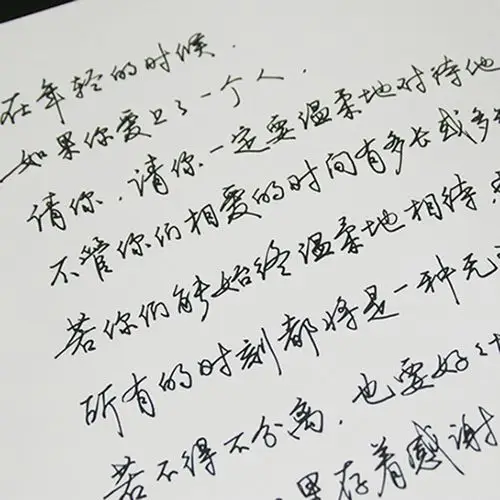 在年轻的时候.
如果你爱上了一个人.
请你.请你一定要温柔地对待他
不管你们相爱的时间有多长或多
若你们能始终温柔地相待.
所有的时刻都将是一种无
若不得不分离.也要好
里存着感谢